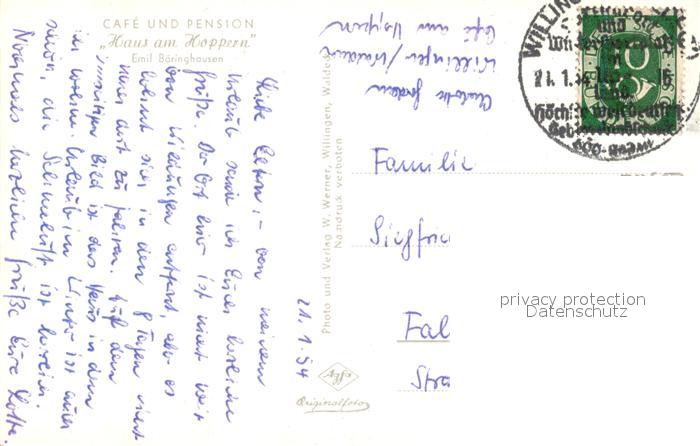 CAFÉ UND PENSION
„Haus am Hoppern"
Emil Böringhausen
Liebe Eltern, – von meinem
Urlaub sende ich Euch herzliche
Grüße. Der Ort hier ist nicht weit
von Wildungen entfernt, aber es
lohnt sich in den 8 Tagen nicht
dort zu fahren. Auf dem
umseitigen Bild ist das Haus in dem
ich wohne. Urlaub im Winter ist auch
schön, die Luft ist herrlich.
Nochmals herzliche Grüße Eure Lotte
21. 1. 54
Willingen/Waldeck
Café am Hoppern
Photo und Verlag W. Werner, Willingen, Waldeck
Nachdruck verboten
Agfa
Originalfoto
Familie
Siegfrie
Fal
Stra
WILLING
und
21. 1. 54
16
10
privacy protection
Datenschutz